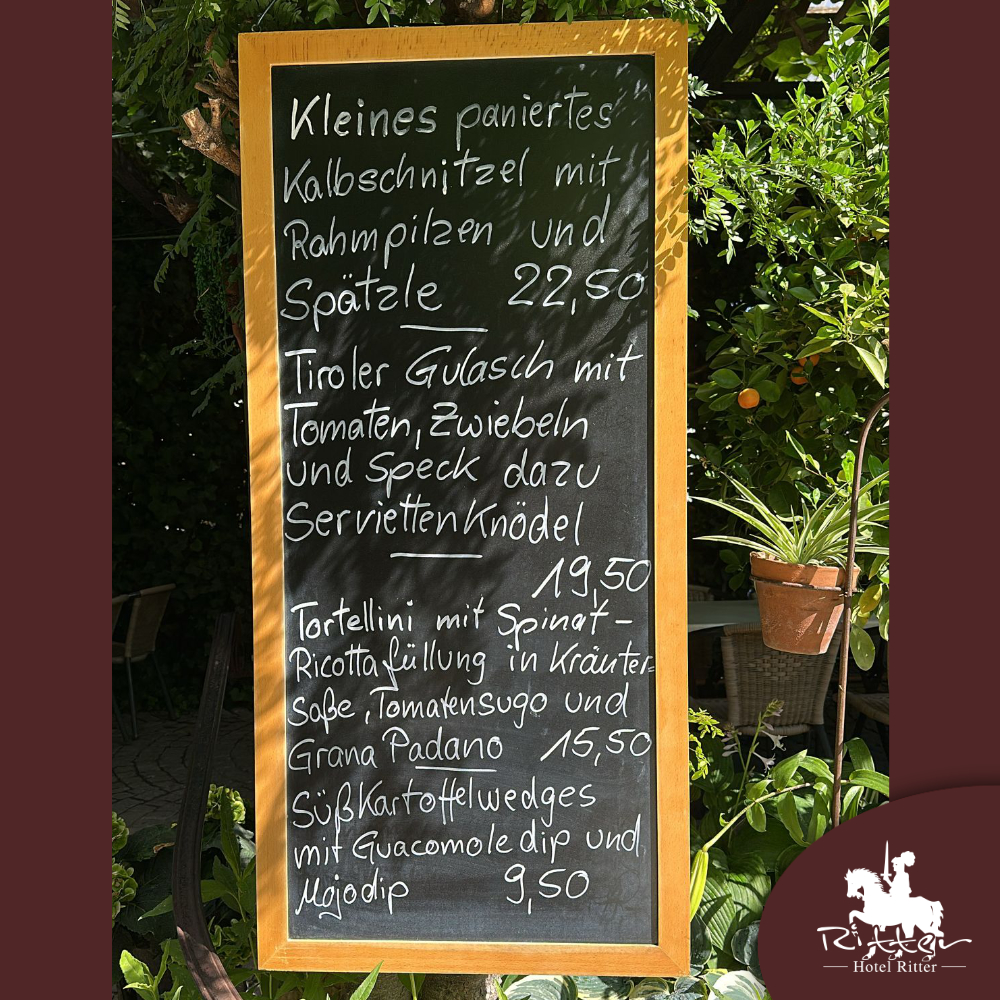 Kleines paniertes
Kalbschnitzel mit
Rahmpilzen und
Spätzle 22,50
Tiroler Gulasch mit
Tomaten, Zwiebeln
und Speck dazu
Serviettenknödel
19,50
Tortellini mit Spinat-
Ricottafüllung in Kräuter=
Soße, Tomatensugo und
Grana Padano 15,50
Süßkartoffelwedges
mit Guacomole dip und
Mojodip 9,50
Ritter
Hotel Ritter